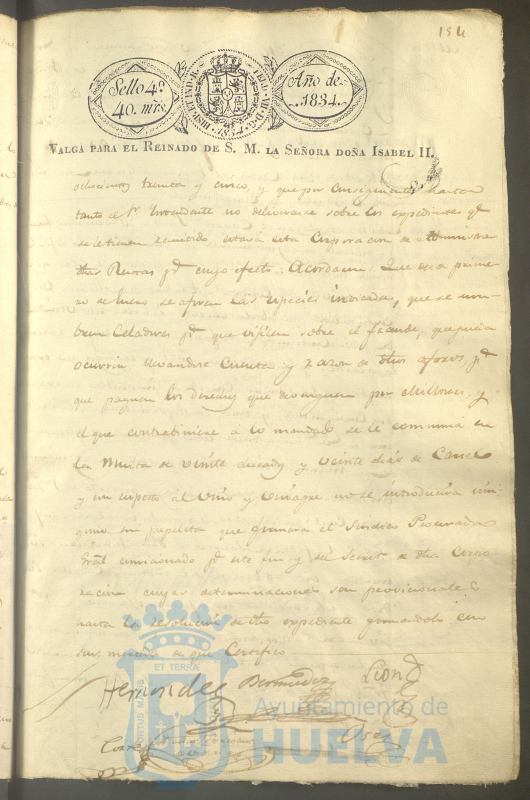 154
Sello 4º
40. mrs.
HISPAN. IND. R.
1834
Año de
1834.
VALGA PARA EL REINADO DE S. M. LA SEÑORA DOÑA ISABEL II.
ochocientos treinta y cinco, y que por consiguiente hasta
tanto el Sr Intendante no deliverase sobre los expedientes qe
se le tienen remitido, estava esta Corporacion de Administrar
dhas Rentas pa cuyo efecto. Acordaron: Que desde primero
de Enero se aforen las especies indicadas, que se nom
bren Celadores pa que vijilen sobre el fraude, que pueda
ocurrir llevandose Cuenta y razon de dhos aforos, pa
que paguen los derechos que devenguen por Millones, y
el que contrabiniere a lo mandado se le comunica en
la Multa de veinte ducados y veinte dias de Carcel
y en cuposto al Vino y Vinagre no se introducira nin
guno sin papeleta que firmará el Sindico Procurador
Gral comisionado pa este fin y el Secreto de dha Corpo
racion cuyas determinaciones son provicionales
hasta la resolucion de dho expediente firmandolo
sus mercedes de que Certifico
Hernandez Bermudez Leon
ET TERRÆ
PORTUS MARIS
Ayuntamiento de
HUELVA